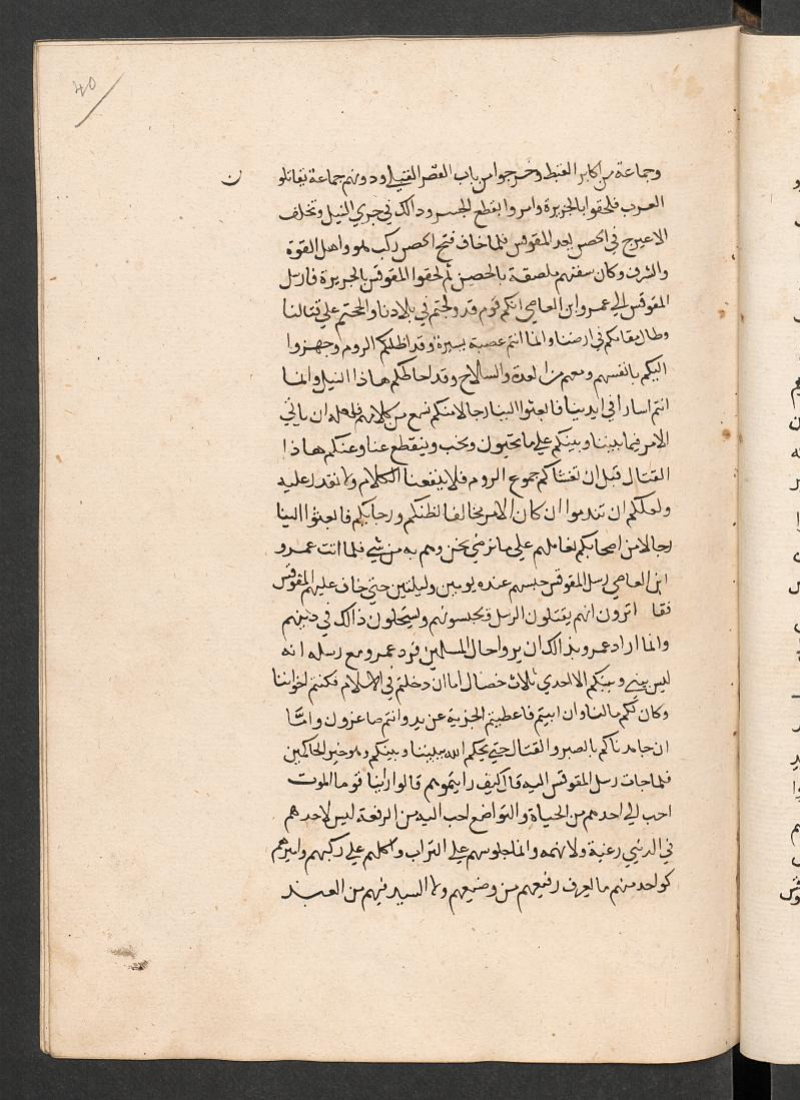 40
وجماعة من اكابر القبط وخرجوا من باب القصر القبلي ودونهم جماعة يقاتلو ن
العرب فلحقوا بالجزيرة وامروا بقطع الجسر ودالك في جري النيل وتخلف
الاعيرج في الحصن بعد المقوقس فلما خاف فتح الحصن ركب هو واهل القوة
والشرف وكان سفنهم ملصقة بالحصن ثم لحقوا المقوقس بالجزيرة فارسل
المقوقس الي عمرو ابن العاصي انكم قوم قد ولجتم في بلادنا والححتم علي قتالنا
وطال مقامكم في ارضنا وانما انتم عصبة يسيرة وقد اظلكم الروم وجهزوا
اليكم بانفسهم ومعهم من العدة والسالاح وقد احاط بكم هاذا النيل وانما
انتم اسارا في ايدينا فابعثوا الينا رجالا منكم نسمع من كلامهم فلعله ان ياتي
الامر فيما بيننا وبينكم علي ما تحبون ونحب وينقطع عنا وعنكم هاذا
القتال قبل ان تغشاكم جموع الروم فلا ينفعنا الكلام ولا نقدر عليه
ولعلكم ان تندموا ان كان الامر مخالفا لظنكم ورجايكم فابعثوا الينا
رجالا من اصحابكم نعاملهم علي ما نرضي نحن وهم به من شي فلما اتت عمرو
ابن العاصي رسل المقوقس حبسهم عنده يومين وليلتين حتي خاف عليهم المقوقس
فقا اترون انهم يقتلون الرسل ويحبسونهم ويستحلون ذالك في دينهم
وانما اراد عمرو بذالك ان يروا حال المسلمين فرد عمرو مع رسله انه
ليس بيني وبينكم الا احدي ثلاث خصال اما ان دخلتم في الاسلام فكنتم اخواننا
وكان لكم ما لنا وان ابيتم فاعطيتم الجزية عن يد وانتم صاغرون واما
ان جاهدناكم بالصبر والقتال حتي يحكم الله بيننا وبينكم وهو خير الحاكمين
فلما جات رسل المقوقس اليه قال كيف رايتموهم قالوا راينا قوما الموت
احب الي احدهم من الحياة والتواضع احب اليه من الرفعة ليس لاحدهم
في الدنيي رغبة ولا نهمة وانما جلوسهم علي التراب واكلهم علي ركبهم واميرهم
كواحد منهم ما يعرف رفيعهم من وضيعهم ولا السيد فيهم من العبد